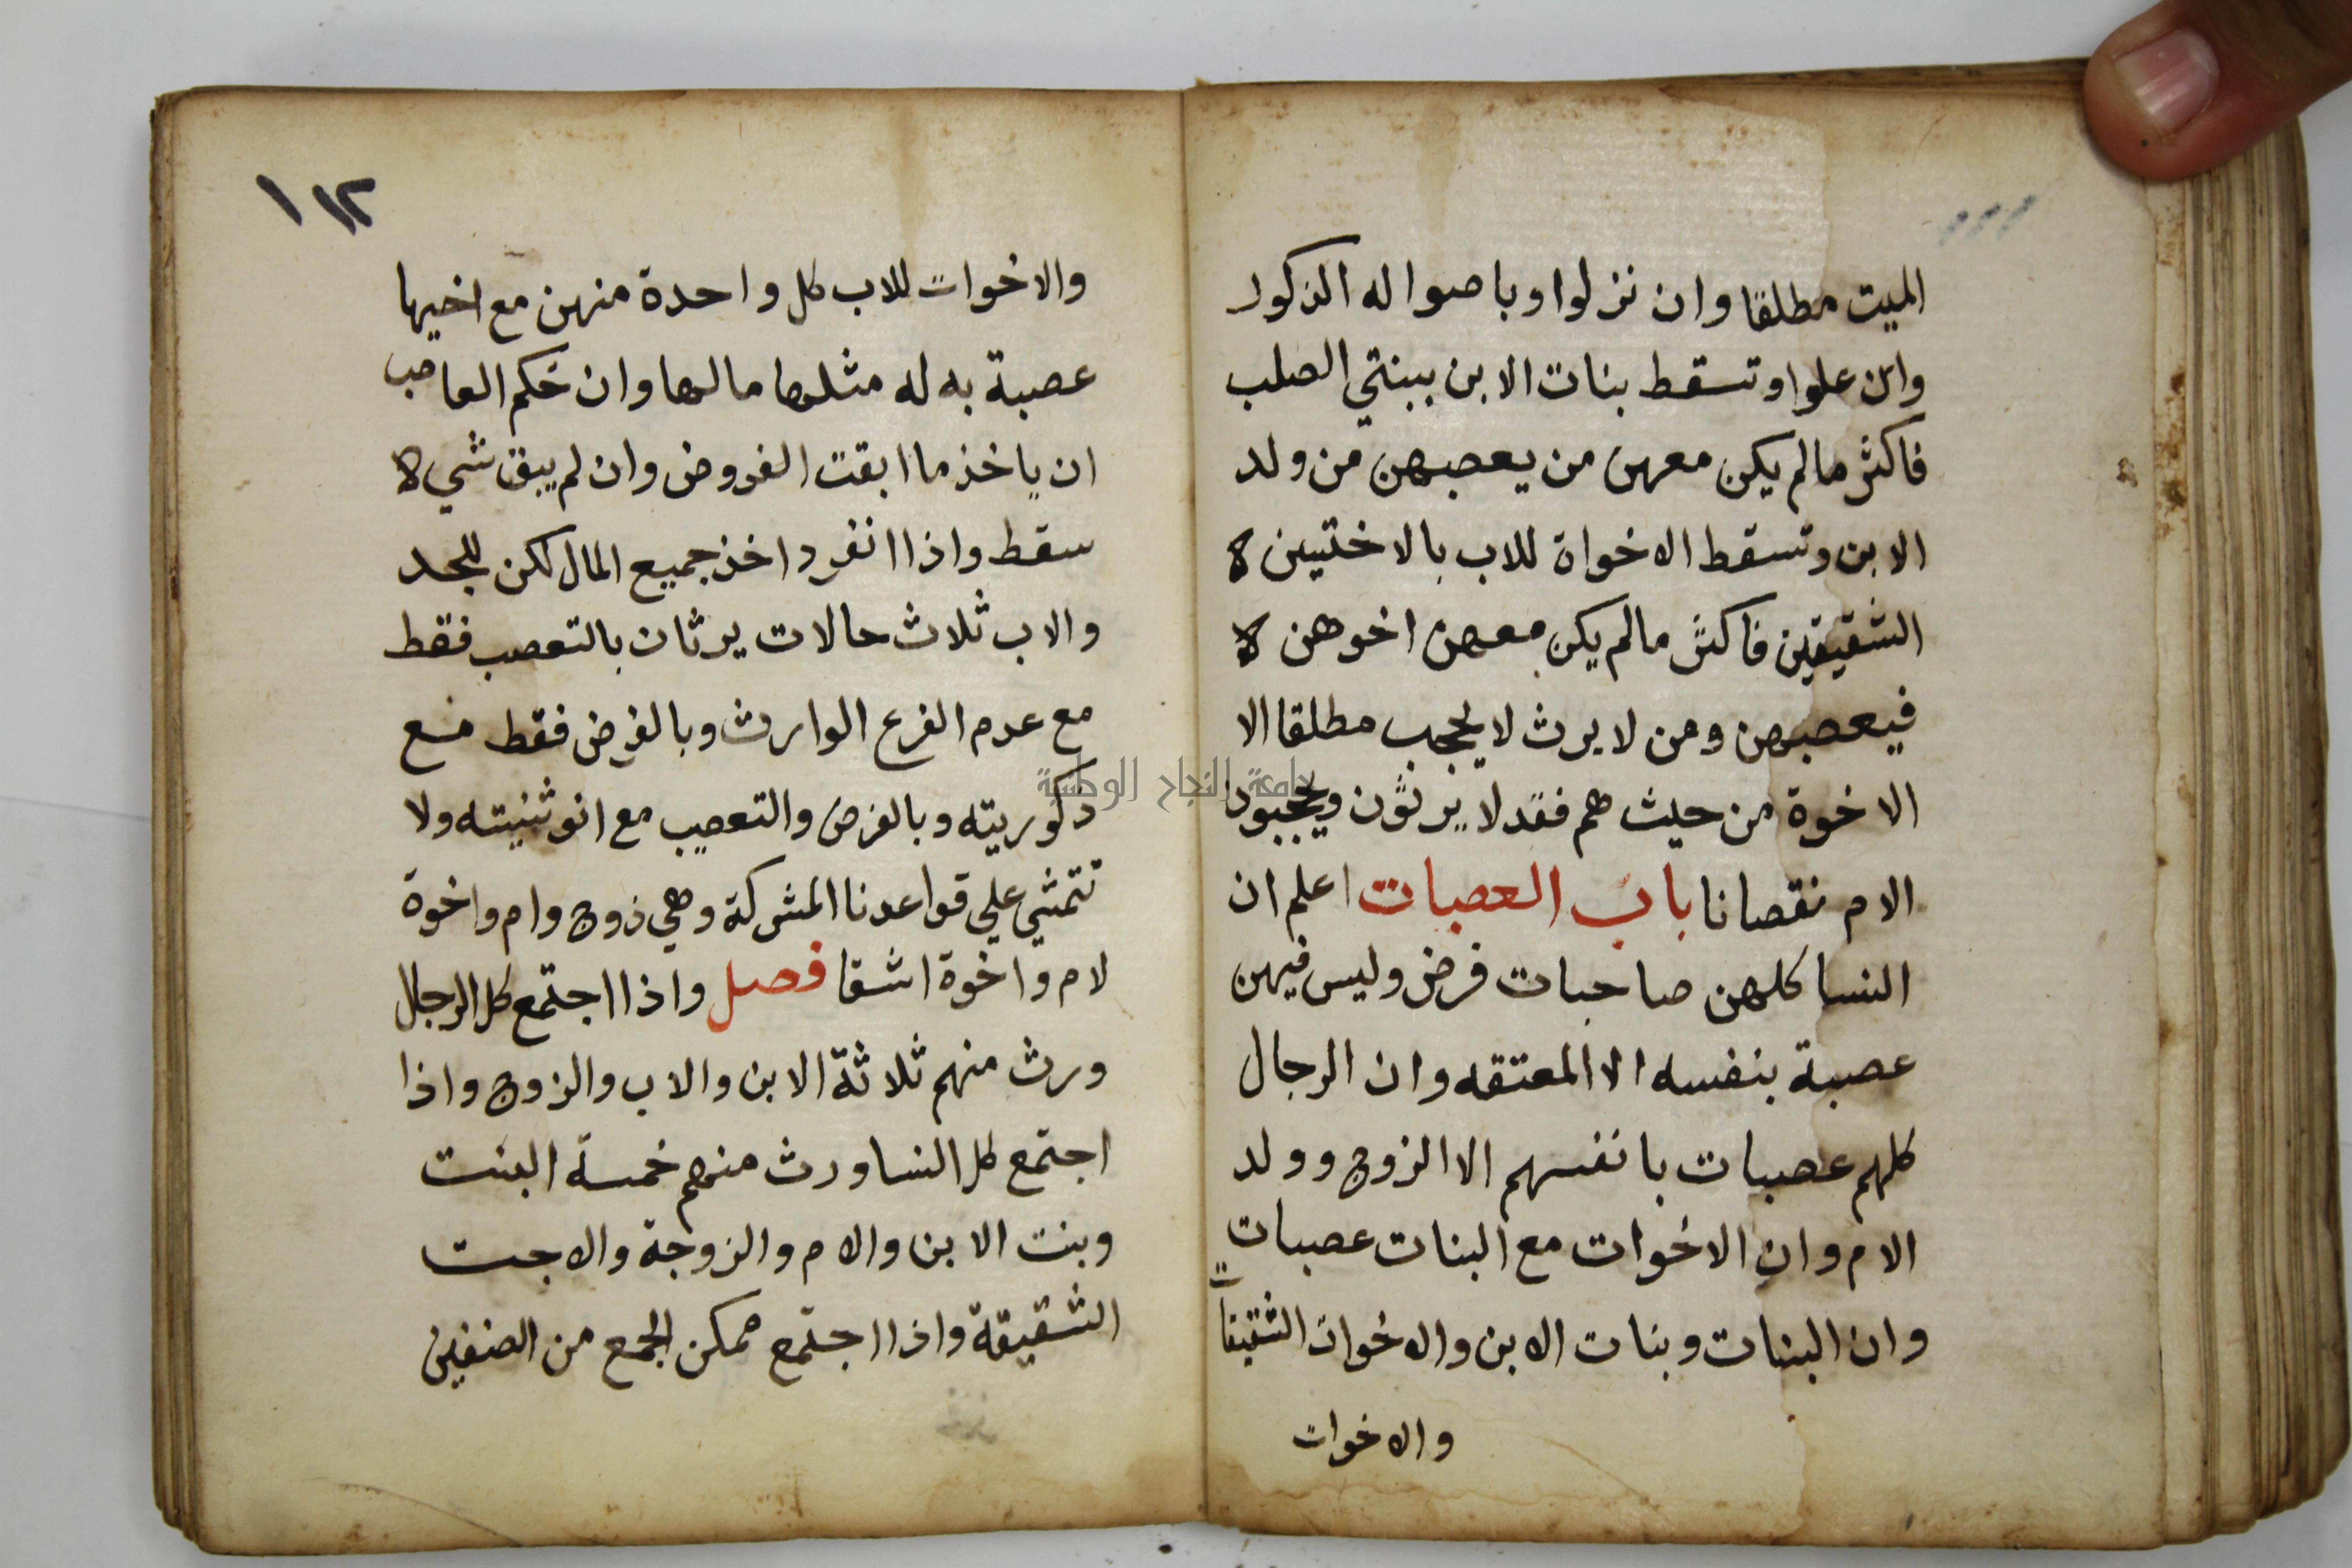 الميت مطلقا وان نزلوا وباصوله الذكور
وان علوا وتسقط بنات الابن ببنتي الصلب
فاكثر مالم يكن معهن من يعصبهن من ولد
الابن وتسقط الاخواة للاب بالاختيين
الشقيقتين فاكثر مالم يكن معهن اخوهن
فيعصبهن ومن لا يرث لا يحجب مطلقا الا
الاخوة من حيث هم فقد لا يرثون ويحجبون
الام نقصانا باب العصبات اعلم ان
النسا كلهن صاحبات فرض وليس فيهن
عصبة بنفسه الا المعتقه وان الرجال
كلهم عصبات بانفسهم الا الزوج وولد
الام وان الاخوات مع البنات عصبات
وان البنات وبنات الابن والاخوات الشقيقات
والاخوات
١١٢
والاخوات للاب كل واحدة منهن مع اخيها
عصبة به له مثلها مالها وان حكم العاصب
ان ياخذ ما ابقت الفروض وان لم يبق شي
سقط واذا انفرد اخذ جميع المال لكن للجد
والاب ثلاث حالات يرثان بالتعصب فقط
مع عدم الفرع الوارث وبالفرض فقط مع
ذكوريته وبالفرض والتعصيب مع انوثنيته ولا
تتمشي علي قواعدنا المشركة وهي زوج وام واخوة
لام واخوة اشقا فصل واذا اجتمع كل الرجال
ورث منهم ثلاثة الابن والاب والزوج واذا
اجتمع كل النسا ورث منهم خمسة البنت
وبنت الابن والام والزوجة والاخت
الشقيقة واذا اجتمع ممكن الجمع من الصنفين
جامعة النجاح الوطنية